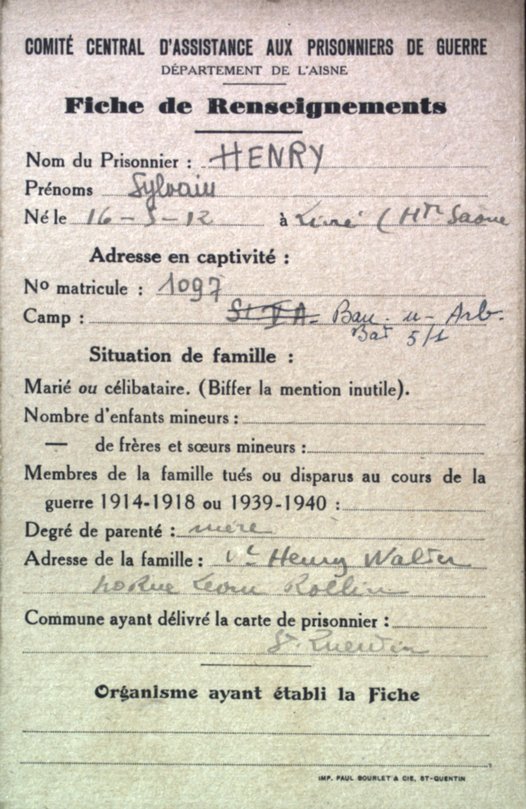 COMITÉ CENTRAL D'ASSISTANCE AUX PRISONNIERS DE GUERRE
DÉPARTEMENT DE L'AISNE
Fiche de Renseignements
Nom du Prisonnier : HENRY
Prénoms Sylvain
Né le 16-5-12 à (Hte Saône
Adresse en captivité :
No matricule : 1097
Camp : St V A. Bau. u- Arb.
Bat 5/1
Situation de famille :
Marié ou célibataire. (Biffer la mention inutile).
Nombre d'enfants mineurs :
— de frères et sœurs mineurs :
Membres de la famille tués ou disparus au cours de la
guerre 1914-1918 ou 1939-1940 :
Degré de parenté : mère
Adresse de la famille : Henry Walter
Rue Léon Rollin
Commune ayant délivré la carte de prisonnier :
St. Quentin
Organisme ayant établi la Fiche
IMP. PAUL BOURLET & CIE, ST-QUENTIN